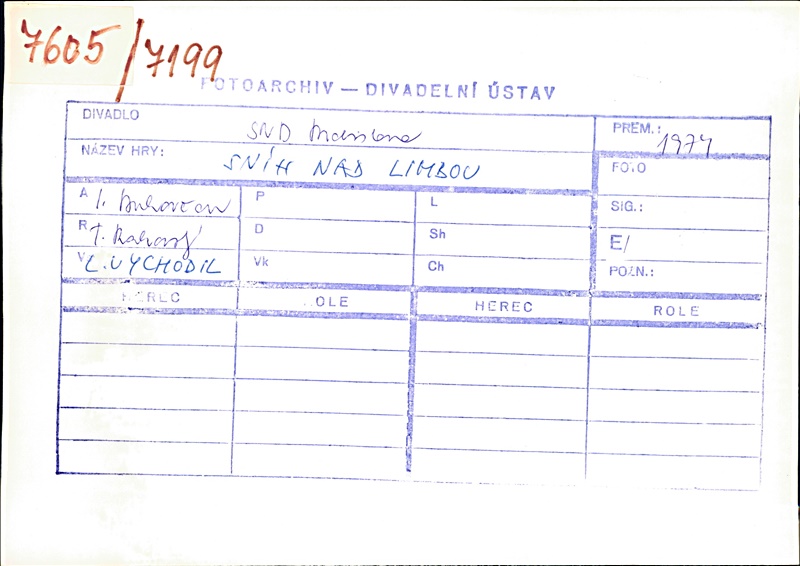 7605/7199
FOTOARCHIV — DIVADELNÍ ÚSTAV
DIVADLO SND PREM.: 1974
NÁZEV HRY: SNÍH NAD LIMBOU FOTO
A I. Bukovčan P L SIG.:
R T. Rakovský D Sh E/
V L. VYCHODIL Vk Ch POZN.:
HEREC ROLE HEREC ROLE